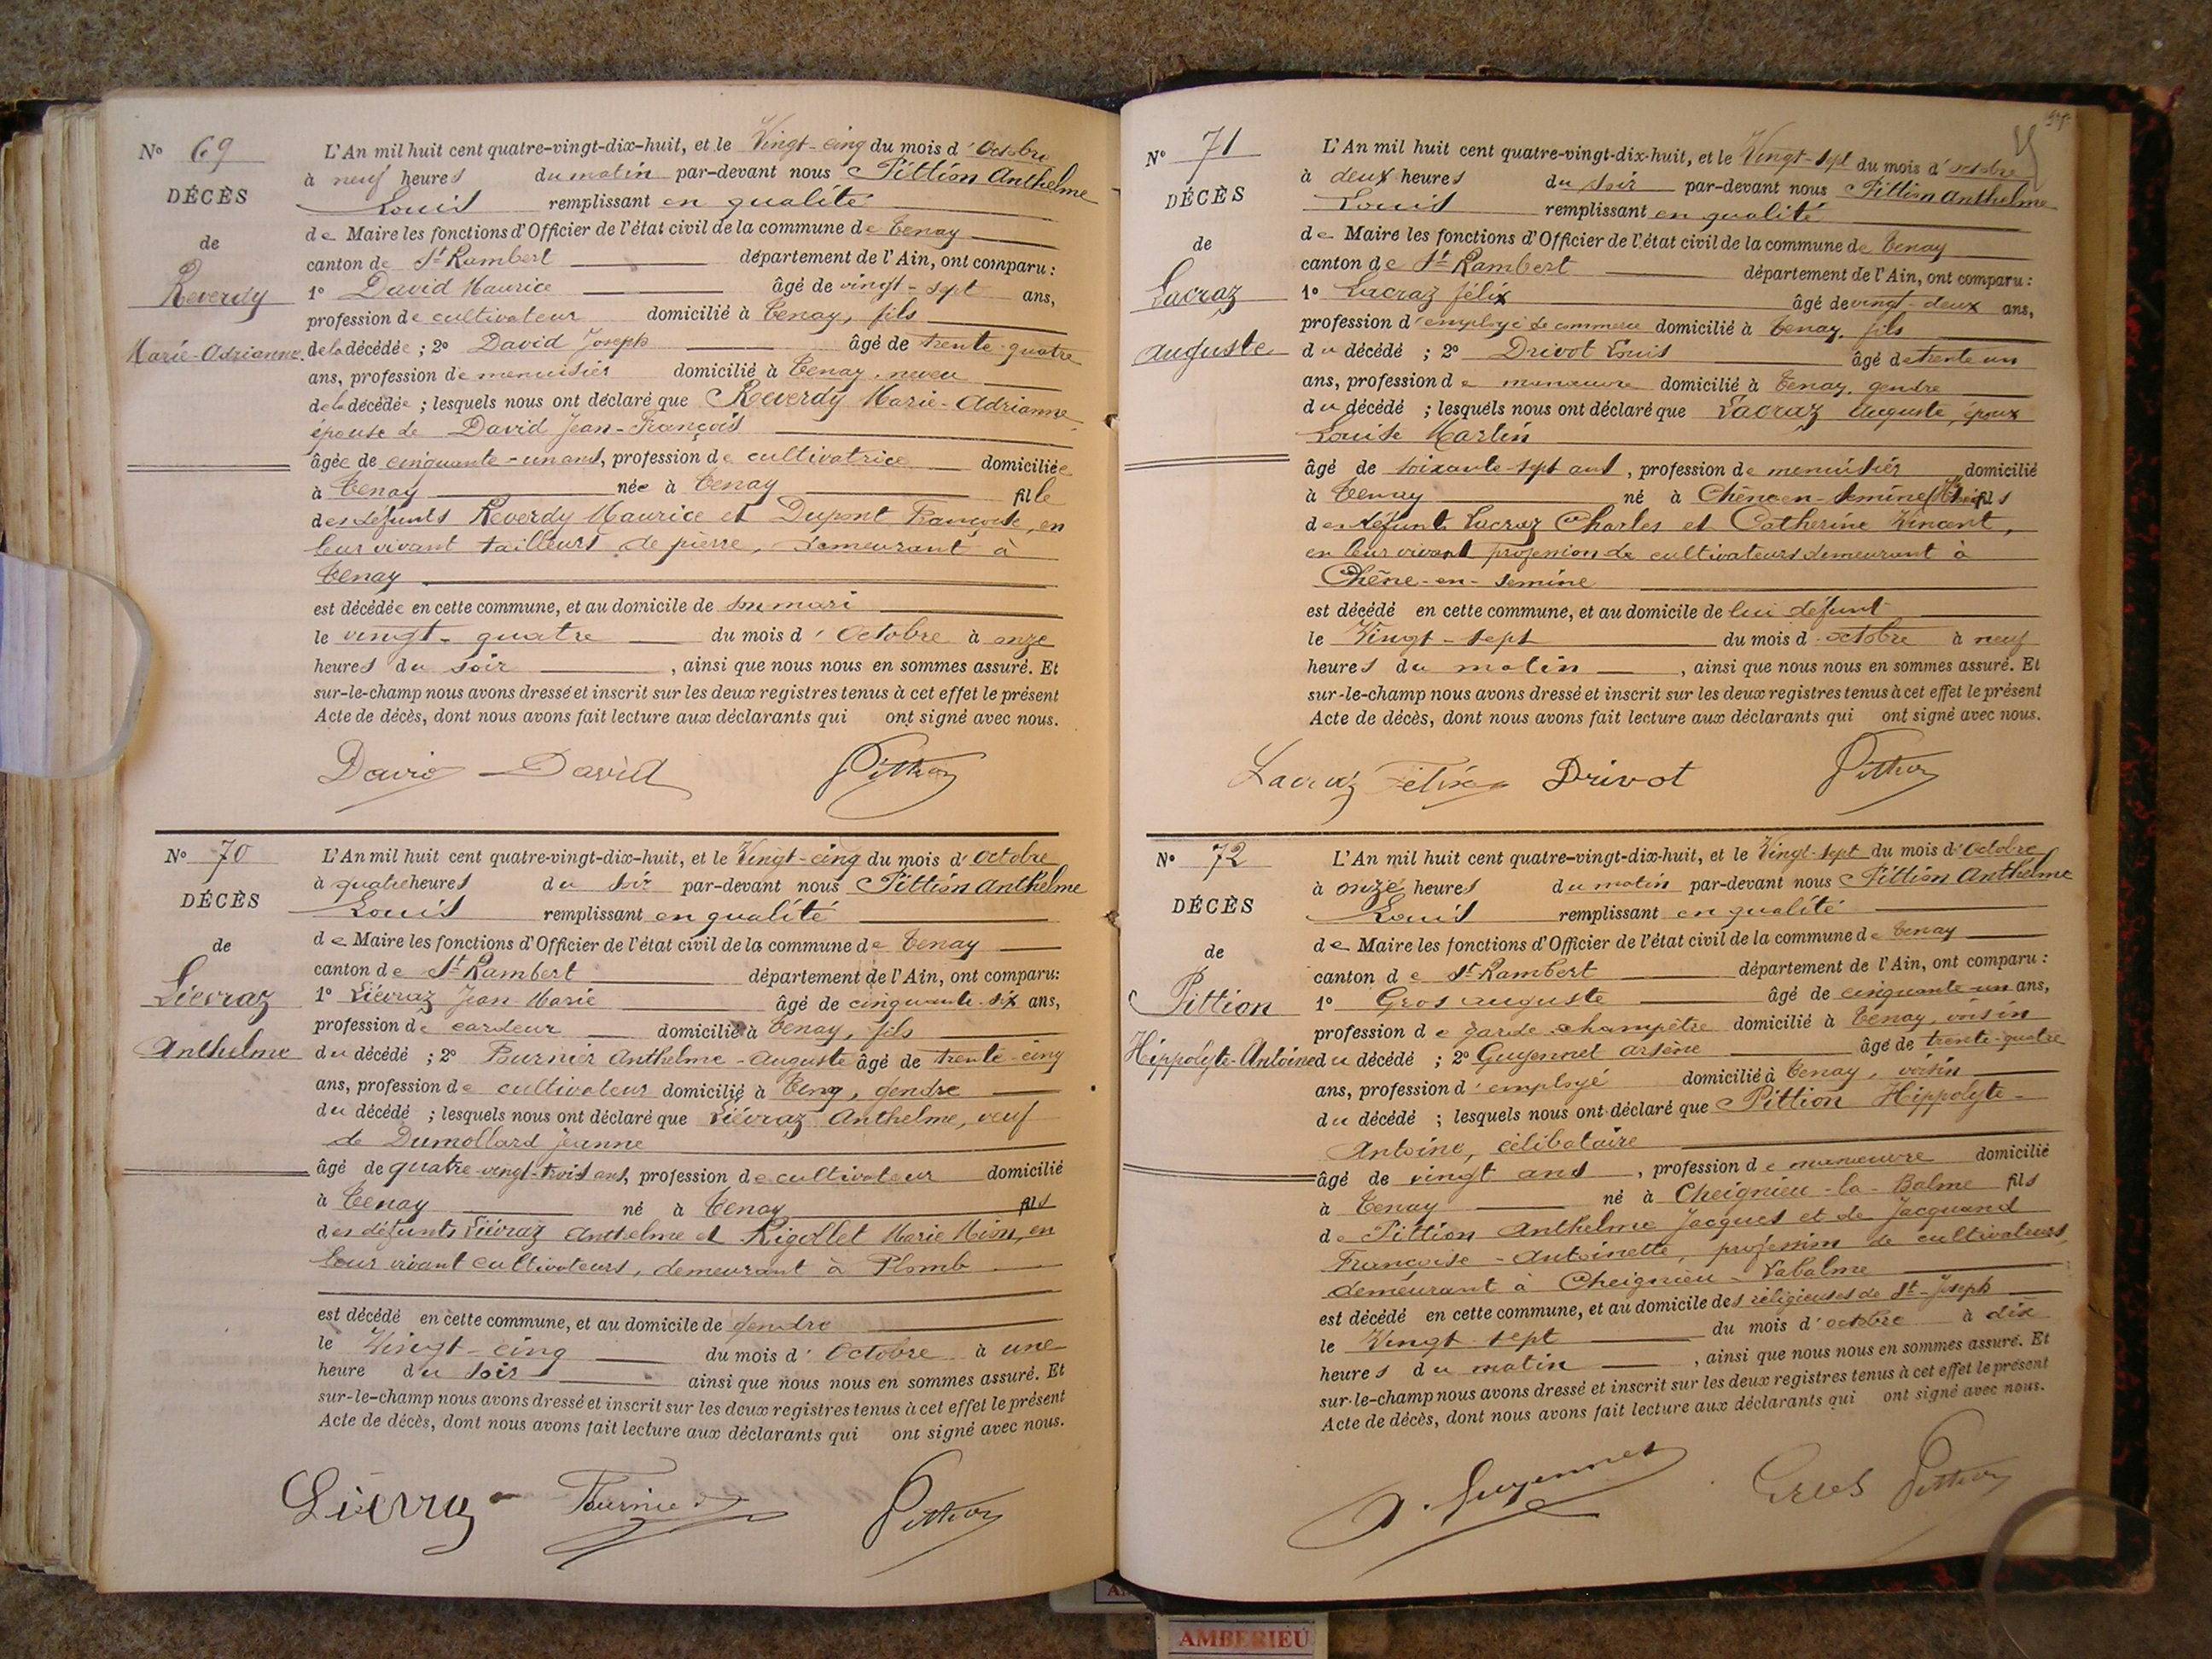 N° 69
DÉCÈS
de
Reverdy
Marie-Adrianne.
L'An mil huit cent quatre-vingt-dix-huit, et le Vingt-cinq du mois d'Octobre
à neuf heures du matin par-devant nous Pittion Anthelme
Louis remplissant en qualité
de Maire les fonctions d'Officier de l'état civil de la commune de Tenay
canton de St Rambert département de l'Ain, ont comparu :
1° David Maurice âgé de vingt-sept ans,
profession de cultivateur domicilié à Tenay, fils
de la décédée ; 2° David Joseph âgé de trente-quatre
ans, profession de menuisier domicilié à Tenay, neveu
de la décédée ; lesquels nous ont déclaré que Reverdy Marie-Adrianne,
épouse de David Jean-François
âgée de cinquante-un ans, profession de cultivatrice domiciliée
à Tenay née à Tenay fille
des défunts Reverdy Maurice et Dupont Françoise, en
leur vivant tailleurs de pierre, demeurant à
Tenay
est décédée en cette commune, et au domicile de son mari
le vingt-quatre du mois d'Octobre à onze
heures du soir , ainsi que nous nous en sommes assuré. Et
sur-le-champ nous avons dressé et inscrit sur les deux registres tenus à cet effet le présent
Acte de décès, dont nous avons fait lecture aux déclarants qui ont signé avec nous.
David David Pittion
N° 70
DÉCÈS
de
Liévraz
Anthelme
L'An mil huit cent quatre-vingt-dix-huit, et le Vingt-cinq du mois d'Octobre
à quatre heures du soir par-devant nous Pittion Anthelme
Louis remplissant en qualité
de Maire les fonctions d'Officier de l'état civil de la commune de Tenay
canton de St Rambert département de l'Ain, ont comparu:
1° Liévraz Jean Marie âgé de cinquante-six ans,
profession de cardeur domicilié à Tenay, fils
du décédé ; 2° Fournier Anthelme-Auguste âgé de trente-cinq
ans, profession de cultivateur domicilié à Teng, gendre
du décédé ; lesquels nous ont déclaré que Liévraz Anthelme, veuf
de Dumollard Jeanne
âgé de quatre-vingt-trois ans, profession de cultivateur domicilié
à Tenay né à Tenay fils
des défunts Liévraz Anthelme et Rigollet Marie en
leur vivant cultivateurs, demeurant à Plomb
est décédé en cette commune, et au domicile de gendre
le Vingt-cinq du mois d'Octobre à une
heure du soir ainsi que nous nous en sommes assuré. Et
sur-le-champ nous avons dressé et inscrit sur les deux registres tenus à cet effet le présent
Acte de décès, dont nous avons fait lecture aux déclarants qui ont signé avec nous.
Fournier Pittion
N° 71
DÉCÈS
de
Lacraz
Auguste
L'An mil huit cent quatre-vingt-dix-huit, et le Vingt-sept du mois d'octobre
à deux heures du soir par-devant nous Pittion Anthelme
Louis remplissant en qualité
de Maire les fonctions d'Officier de l'état civil de la commune de Tenay
canton de St Rambert département de l'Ain, ont comparu :
1° Lacraz Félix âgé de vingt-deux ans,
profession d'employé de commerce domicilié à Tenay, fils
du décédé ; 2° Drivot Louis âgé de trente un
ans, profession de manœuvre domicilié à Tenay, gendre
du décédé ; lesquels nous ont déclaré que Lacraz Auguste, époux
Louise Martin
âgé de soixante-sept ans, profession de menuisier domicilié
à Tenay né à Chêne en-Semine fils
des défunts Lacraz Charles et Catherine Vincent,
en leur vivant profession de cultivateurs demeurant à
Chêne-en-Semine
est décédé en cette commune, et au domicile de lui défunt
le Vingt-sept du mois d'octobre à neuf
heures du matin , ainsi que nous nous en sommes assuré. Et
sur-le-champ nous avons dressé et inscrit sur les deux registres tenus à cet effet le présent
Acte de décès, dont nous avons fait lecture aux déclarants qui ont signé avec nous.
Lacraz Félix Drivot Pittion
N° 72
DÉCÈS
de
Pittion
Hippolyte-Antoine
L'An mil huit cent quatre-vingt-dix-huit, et le Vingt-sept du mois d'Octobre
à onze heures du matin par-devant nous Pittion Anthelme
Louis remplissant en qualité
de Maire les fonctions d'Officier de l'état civil de la commune de Tenay
canton de St Rambert département de l'Ain, ont comparu :
1° Gros Auguste âgé de cinquante-un ans,
profession de garde-champêtre domicilié à Tenay, voisin
du décédé ; 2° Guyennet Arsène âgé de trente-quatre
ans, profession d'employé domicilié à Tenay, voisin
du décédé ; lesquels nous ont déclaré que Pittion Hippolyte-
Antoine, célibataire
âgé de vingt ans , profession de manœuvre domicilié
à Tenay né à Cheignieu-la-Balme fils
de Pittion Anthelme Jacques et de Jacquand
Françoise-Antoinette, profession de cultivateurs,
demeurant à Cheignieu-Labalme
est décédé en cette commune, et au domicile des religieuses de St-Joseph
le Vingt-sept du mois d'octobre à dix
heures du matin , ainsi que nous nous en sommes assuré. Et
sur-le-champ nous avons dressé et inscrit sur les deux registres tenus à cet effet le présent
Acte de décès, dont nous avons fait lecture aux déclarants qui ont signé avec nous.
A. Guyennet Gros Pittion
AMBERIEU